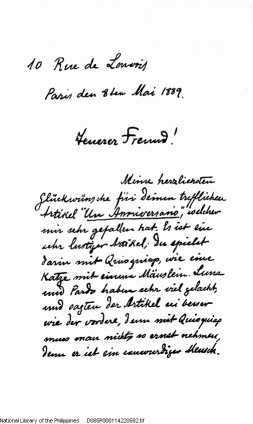 10 Rue de Louvois
Paris den 8ten Mai 1889.
Teuerer Freund!
Meine herzlichsten
Glückwünsche für deinen trefflichen
Artikel "Un Anniversario", welcher
mir sehr gefallen hat. Es ist ein
sehr lustiger Artikel: Du spielst
darin mit Quioquiap, wie eine
Katze mit einem Mäuslein. Luna
und Pardo haben sehr viel gelacht,
und sagten der Artikel sei besser
wie der vordere, denn mit Quioquiap
muss man nichts so ernst nehmen,
denn er ist ein Mensch.
National Library of the Philippines